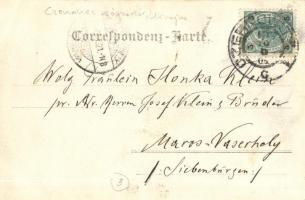 Correspondenz-Karte.
Wolg Fräulein Ilonka Klein
pr. Adr. Herrn Josef Klein & Brüder
Maros-Vaserhely
/: Siebenbürgen :/
3